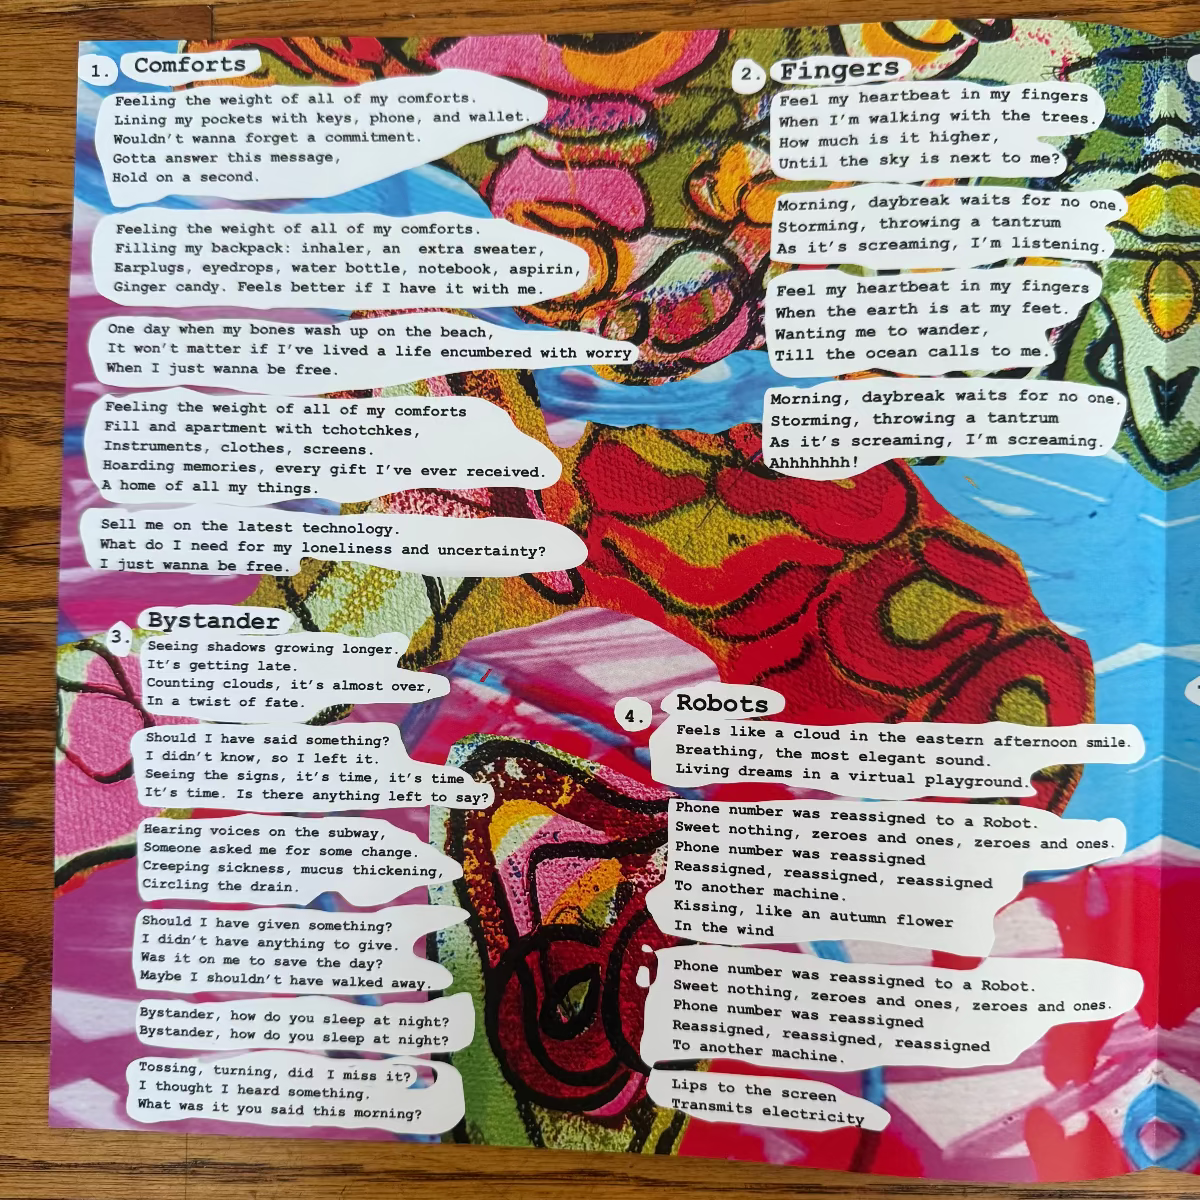 1. Comforts
Feeling the weight of all of my comforts.
Lining my pockets with keys, phone, and wallet.
Wouldn't wanna forget a commitment.
Gotta answer this message,
Hold on a second.
Feeling the weight of all of my comforts.
Filling my backpack: inhaler, an extra sweater,
Earplugs, eyedrops, water bottle, notebook, aspirin,
Ginger candy. Feels better if I have it with me.
One day when my bones wash up on the beach,
It won't matter if I've lived a life encumbered with worry
When I just wanna be free.
Feeling the weight of all of my comforts
Fill and apartment with tchotchkes,
Instruments, clothes, screens.
Hoarding memories, every gift I've ever received.
A home of all my things.
Sell me on the latest technology.
What do I need for my loneliness and uncertainty?
I just wanna be free.
2. Fingers
Feel my heartbeat in my fingers
When I'm walking with the trees.
How much is it higher,
Until the sky is next to me?
Morning, daybreak waits for no one.
Storming, throwing a tantrum
As it's screaming, I'm listening.
Feel my heartbeat in my fingers
When the earth is at my feet.
Wanting me to wander,
Till the ocean calls to me.
Morning, daybreak waits for no one.
Storming, throwing a tantrum
As it's screaming, I'm screaming.
Ahhhhhhh!
3. Bystander
Seeing shadows growing longer.
It's getting late.
Counting clouds, it's almost over,
In a twist of fate.
Should I have said something?
I didn't know, so I left it.
Seeing the signs, it's time, it's time
It's time. Is there anything left to say?
Hearing voices on the subway,
Someone asked me for some change.
Creeping sickness, mucus thickening,
Circling the drain.
Should I have given something?
I didn't have anything to give.
Was it on me to save the day?
Maybe I shouldn't have walked away.
Bystander, how do you sleep at night?
Bystander, how do you sleep at night?
Tossing, turning, did I miss it?
I thought I heard something.
What was it you said this morning?
4. Robots
Feels like a cloud in the eastern afternoon smile.
Breathing, the most elegant sound.
Living dreams in a virtual playground.
Phone number was reassigned to a Robot.
Sweet nothing, zeroes and ones, zeroes and ones.
Phone number was reassigned
Reassigned, reassigned, reassigned
To another machine.
Kissing, like an autumn flower
In the wind
Phone number was reassigned to a Robot.
Sweet nothing, zeroes and ones, zeroes and ones.
Phone number was reassigned
Reassigned, reassigned, reassigned
To another machine.
Lips to the screen
Transmits electricity